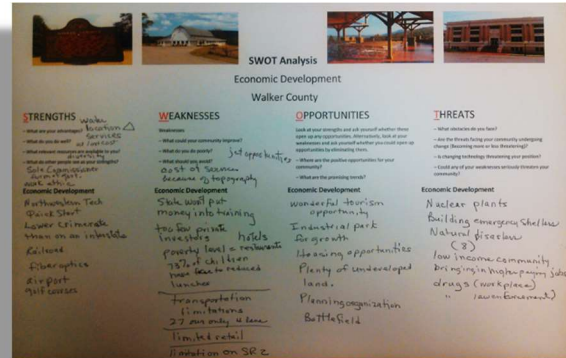 SWOT Analysis
Economic Development
Walker County
STRENGTHS
water
location
services
at low cost
- What are your advantages?
- What do you do well?
- What relevant resources are available to you?
diversity
- What do other people see as your strengths?
Sole Commissioner
form of govt.
work ethic
Economic Development
Northwestern Tech
Quick Start
Lower crime rate
than on an interstate
Railroad
Fiber optics
airport
golf courses
WEAKNESSES
Weaknesses
- What could your community improve?
- What do you do poorly?
job opportunities
- What should you avoid?
cost of sewer
because of topography
Economic Development
State won't put
money into training
too few private
investors hotels
poverty level & restaurants
73% of children
have to reduced
lunches
transportation
limitations
27 our only 4 lane
limited retail
limitation on SR 2
OPPORTUNITIES
Look at your strengths and ask yourself whether these
open up any opportunities. Alternatively, look at your
weaknesses and ask yourself whether you could open up
opportunities by eliminating them.
- Where are the positive opportunities for your
community?
- What are the promising trends?
Economic Development
wonderful tourism
opportunity
Industrial park
for growth
Housing opportunities
Plenty of undeveloped
land.
Planning organization
Battlefield
THREATS
- What obstacles do you face?
- Are the threats facing your community undergoing
change (Becoming more or less threatening)?
- Is changing technology threatening your position?
- Could any of your weaknesses seriously threaten your
community?
Economic Development
Nuclear plants
Building emergency shelters
Natural disasters
(8)
low income community
bringing in higher paying jobs
drugs (workplace)
" law enforcement)